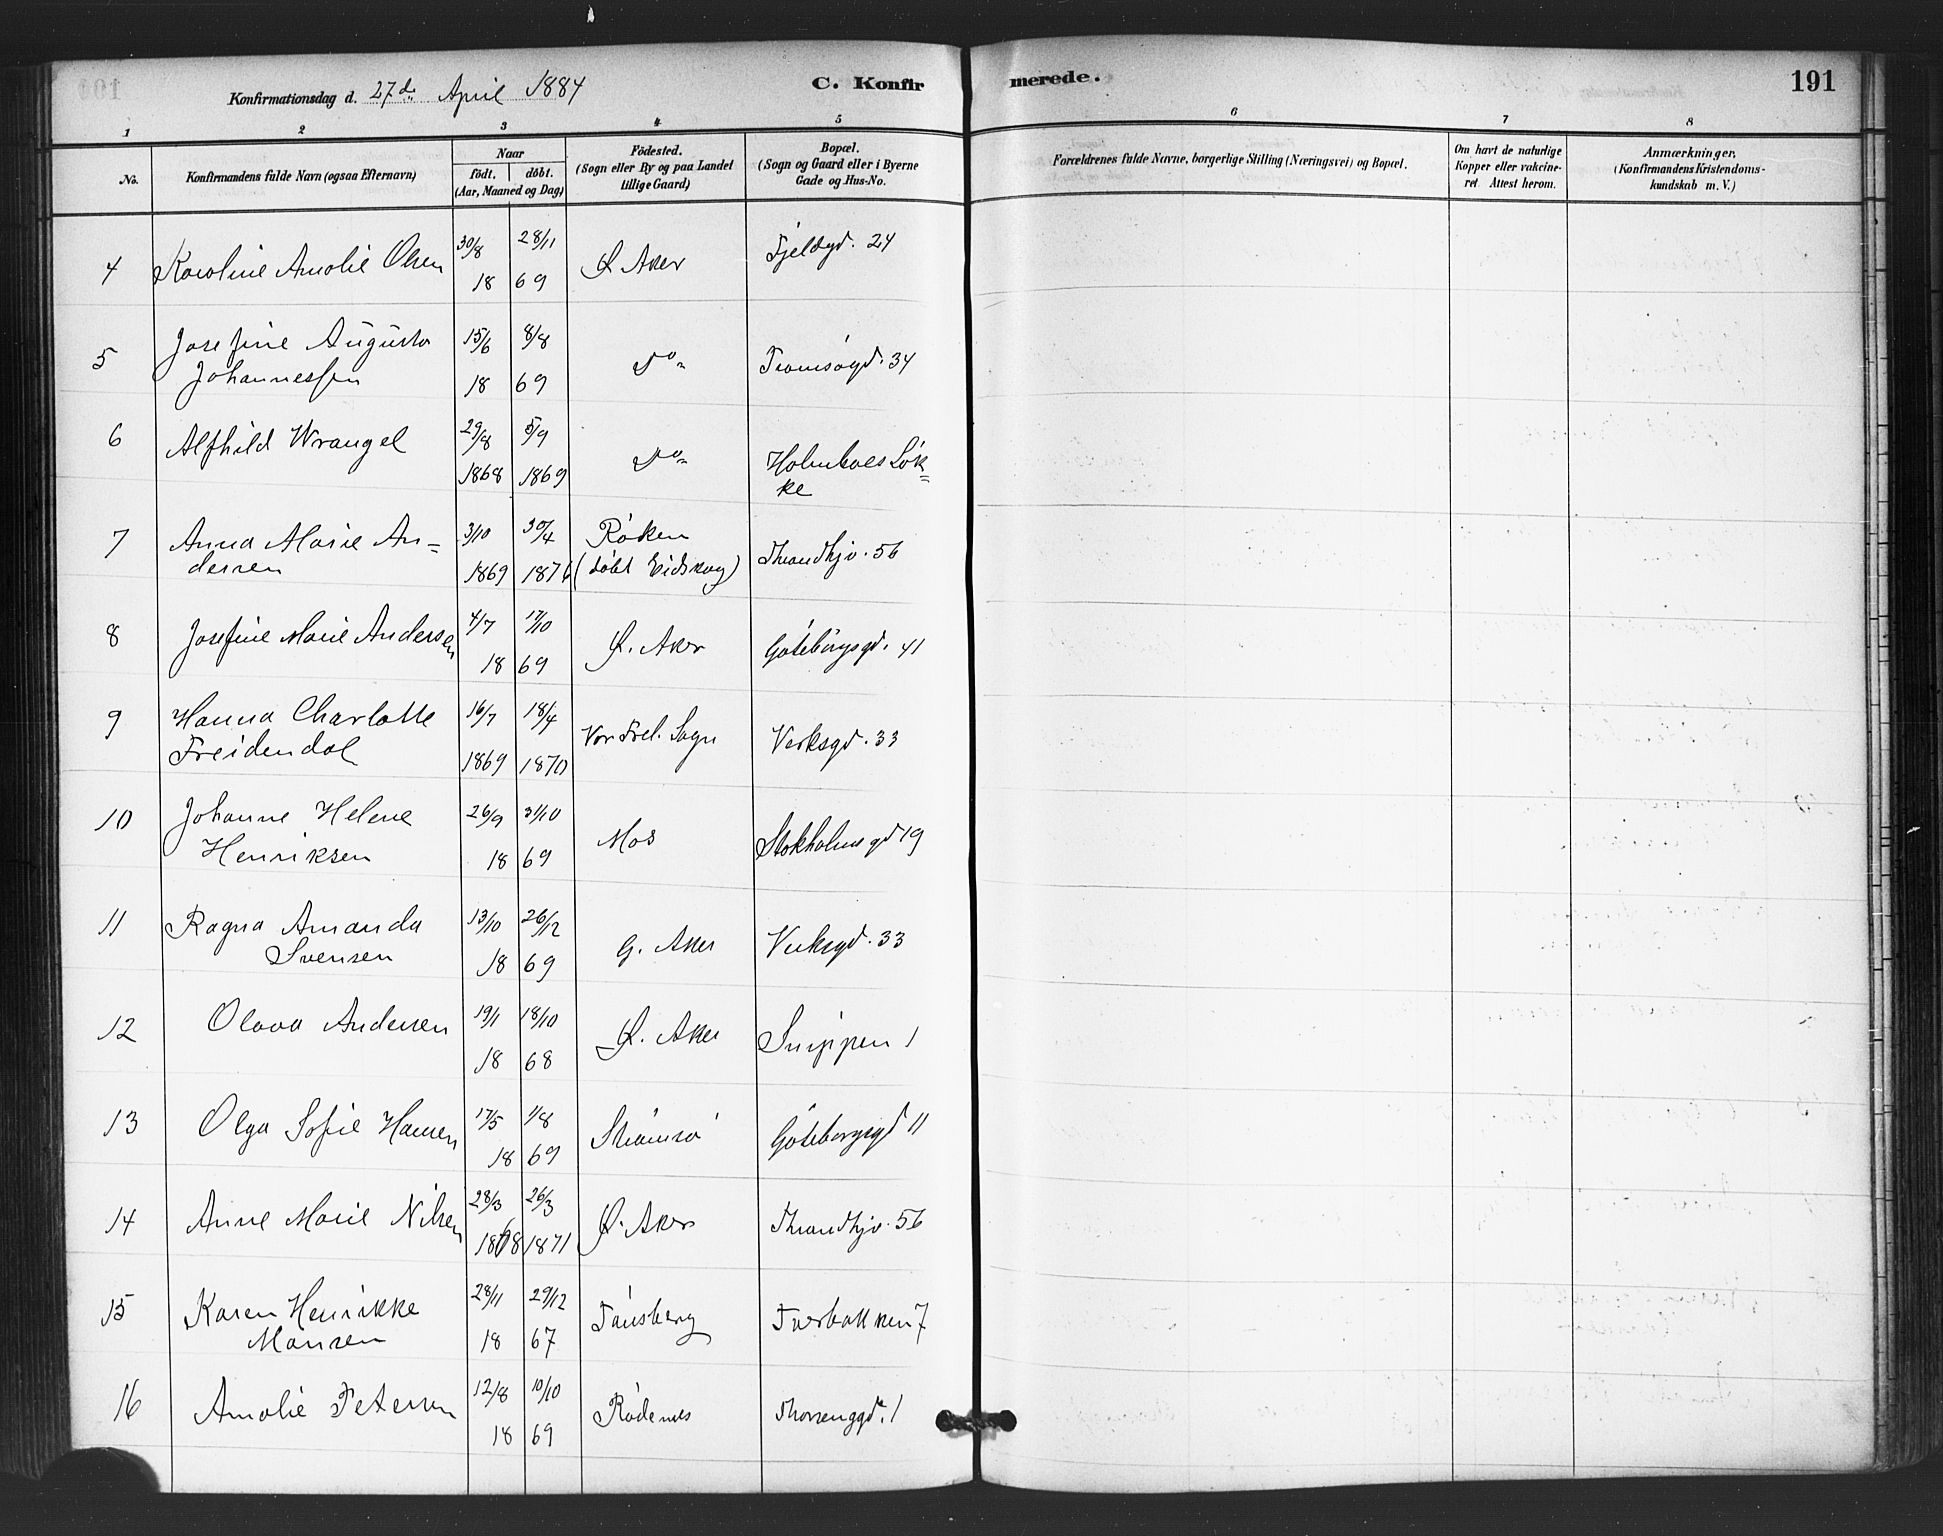 Konfirmationsdag d. 27d. April 1884
C. Konfirmerede.
191
1 2 3 4 5 6 7 8
No.
Konfirmandens fulde Navn (ogsaa Efternavn)
Naar
födt. döbt.
(Aar, Maaned og Dag)
Födested.
(Sogn eller By og paa Landet
tillige Gaard)
Bopæl.
(Sogn og Gaard eller i Byerne
Gade og Hus-No.
Forældrenes fulde Navne, borgerlige Stilling (Næringsvei) og Bopæl.
Om havt de naturlige
Kopper eller vakcine-
ret Attest herom.
Anmærkninger.
(Konfirmandens Kristendoms-
kundskab m. V.)
4 Karoline Amalie Olsen 30/8 28/11 Ø Aker Fjeldgd. 24
18 69
5 Josefine Augusta 15/6 8/8 Do Tromsøgd. 34
Johannessen 18 69
6 Alfhild Wrangel 29/8 5/9 Do Holmboes Løk=
1868 1869 ke
7 Anna Marie An= 3/10 30/4 Røken Throndhjv. 56
dersen 1869 1876 (døbt Eidskog)
8 Josefine Marie Andersen 4/7 17/10 Ø. Aker Gøteborgsgd. 41
18 69
9 Hanna Charlotte 16/7 18/4 Vor Frel. Sogn Verksgd. 33
Freidendal 1869 1870
10 Johanne Helene 26/9 31/10 Mos Stokholmsgd 19
Henriksen 18 69
11 Ragna Amanda 13/10 26/12 G. Aker Verksgd. 33
Svensen 18 69
12 Olava Andersen 19/1 18/10 Ø. Aker Snippen 1
18 68
13 Olga Sofie Hansen 17/5 1/8 Strømsø Gøteborgsgd 11
18 69
14 Anne Marie Nilsen 28/3 26/3 Ø. Aker Throndhjv. 56
1868 1871
15 Karen Henrikke 28/11 29/12 Tønsberg Tverbakken 7
Monsen 18 67
16 Amalie Petersen 12/8 10/10 Rødenes 1
18 69